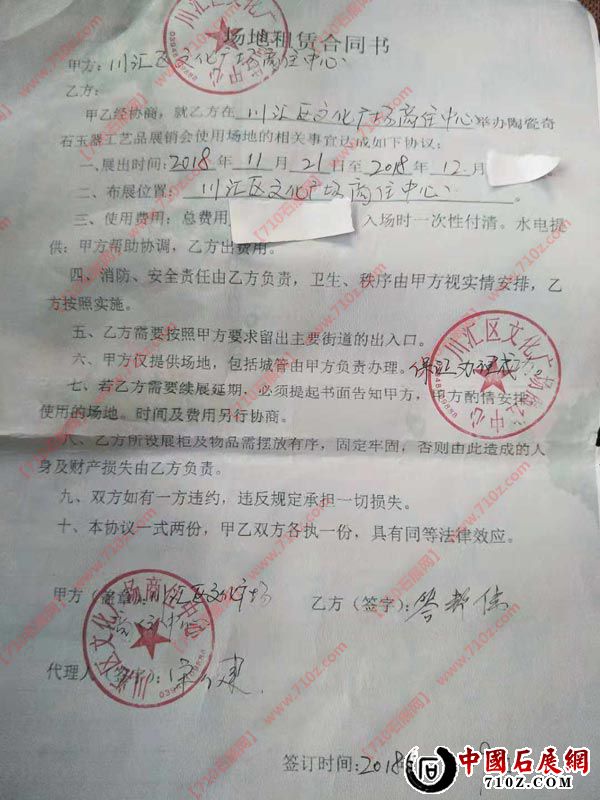 场地租赁合同书
甲方：川汇区文化广场商住中心
乙方：
甲乙经协商，就乙方在 川汇区文化广场商住中心 举办陶瓷奇
石玉器工艺品展销会使用场地的相关事宜达成如下协议：
一、展出时间：2018年 11月 21日至2018年 12月
二、布展位置：川汇区文化广场商住中心。
三、使用费用：总费用 入场时一次性付清。水电提
供：甲方帮助协调，乙方出费用。
四、消防、安全责任由乙方负责，卫生、秩序由甲方视实情安排，乙
方按照实施。
五、乙方需要按照甲方要求留出主要街道的出入口。
六、甲方仅提供场地，包括城管由甲方负责办理。保证办理成功。
七、若乙方需要续展延期，必须提起书面告知甲方，甲方酌情安排
使用的场地。时间及费用另行协商。
八、乙方所设展柜及物品需摆放有序，固定牢固，否则由此造成的人
身及财产损失由乙方负责。
九、双方如有一方违约，违反规定承担一切损失。
十、本协议一式两份，甲乙双方各执一份，具有同等法律效应。
甲方（盖章）：川汇区文化广场 乙方（签字）：
代理人（签字）：
签订时间：2018
中國石展網
www.710z.com
【710石展网】www.710z.com